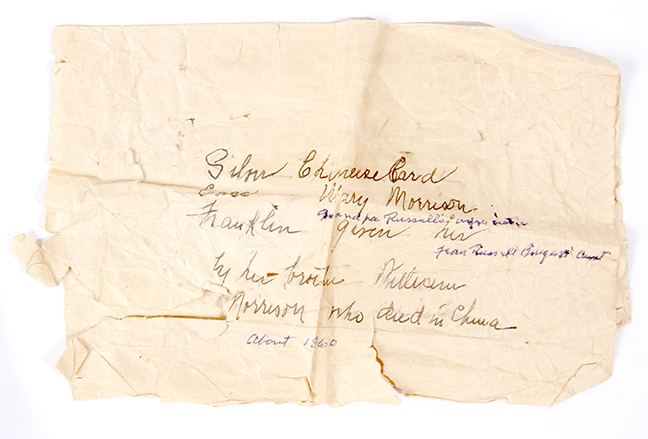 Silver Chinese Card
Case Mary Morrison
Grandpa Russell's
Franklin given her
Jean Russell Aunt
by her brother William
Morrison who died in China
About 1860